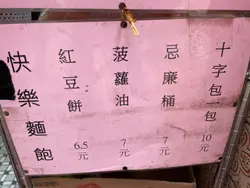 十字包一包 10元
忌廉桶 7元
菠蘿油 7元
紅豆餅 6.5元
快樂麵飽